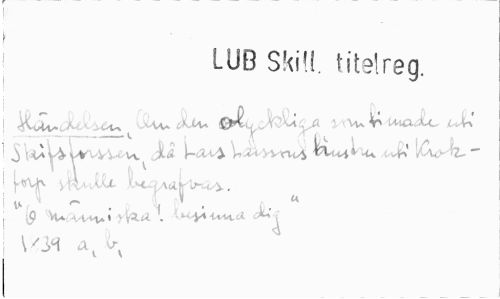 LUB Skill. titelreg.
Händelsen, Om den olyckliga som timade uti
Skifsforssen, då Lars Larssons hustru uti Krok-
torp skulle begrafvas.
"O människa! besinna dig"
1839 a, b,